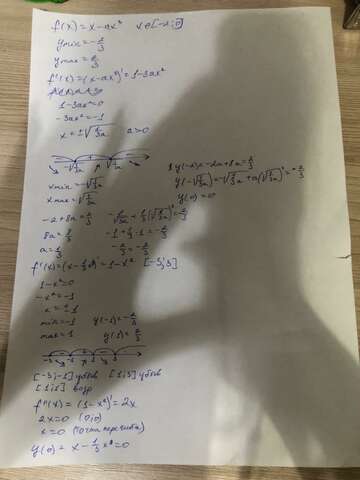 f(x) = x - ax³ x ∈ [-2; 0]
y min = -2/3
y max = 2/3
f'(x) = (x - ax³)' = 1 - 3ax²
1 - 3ax² = 0
-3ax² = -1
x = ±√(1/3a) a > 0
-√(1/3a) √(1/3a)
x min = -√(1/3a)
x max = √(1/3a)
y(-2) = -2 + 8a = 2/3
y(0) = 0
-2 + 8a = 2/3
8a = 8/3
a = 1/3
-1 + 1/3 · 1 = -2/3
-2/3 = -2/3
f'(x) = (x - 1/3 x³)' = 1 - x² [-3; 3]
1 - x² = 0
-x² = -1
x = ±1
min = -1 y(-1) = -2/3
max = 1 y(1) = 2/3
-3 -1 1 3
[-3; -1] убыв [1; 3] убыв
возр
2x = 0 (0; 0)
x = 0 (точка перегиба)
y(0) = x - 1/3 x³ = 0